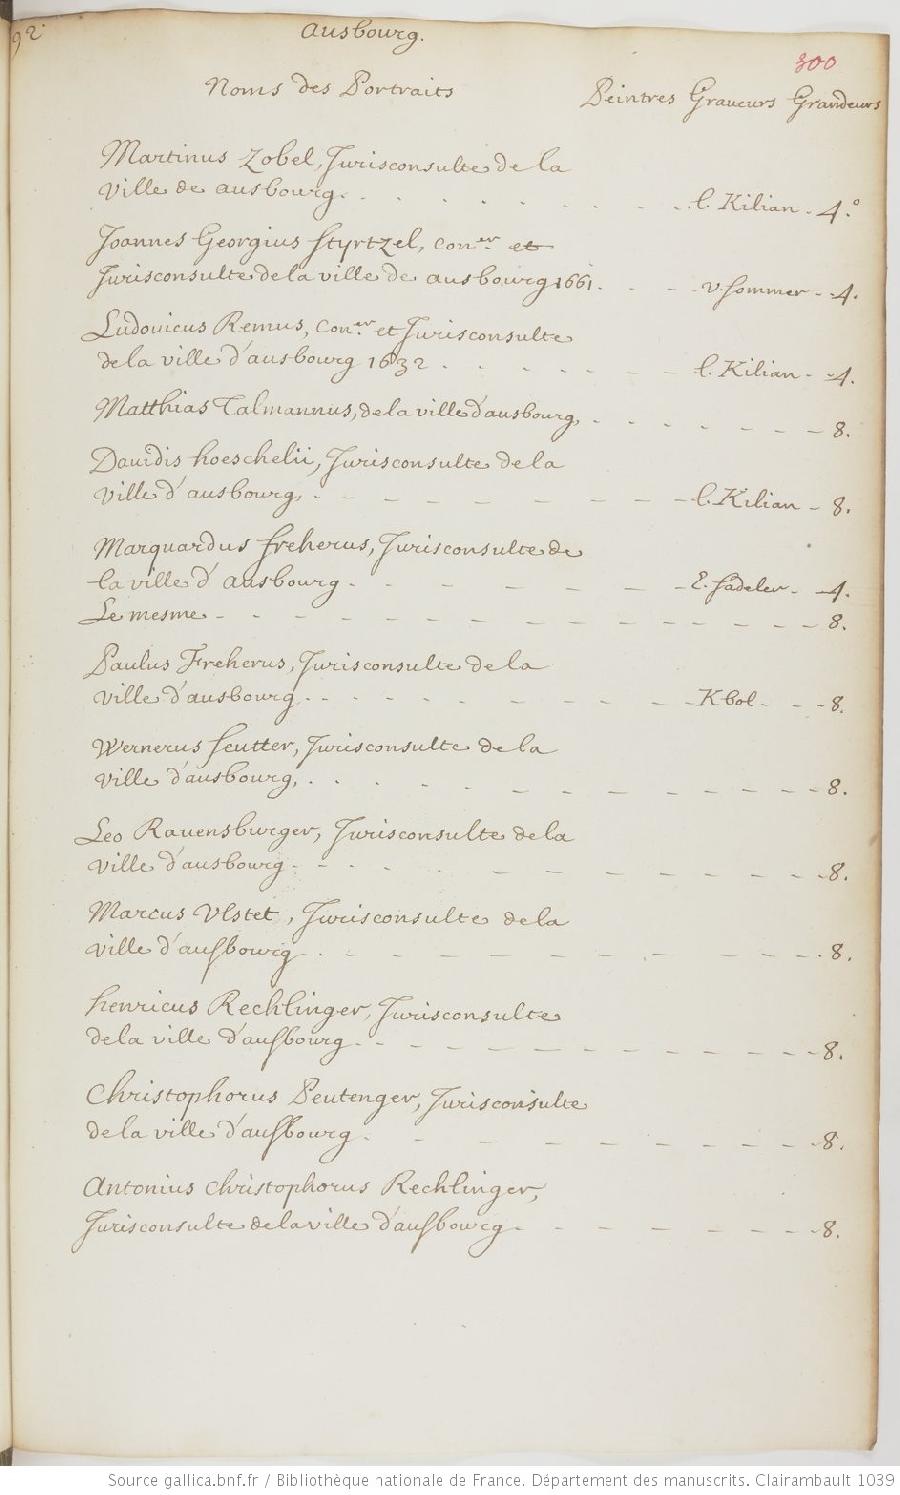 92
Ausbourg.
300
Noms des Portraits Peintres Graveurs Grandeurs
Martinus Zobel, Jurisconsulte de la
ville de ausbourg. l. Kilian - 4.°
Joannes Georgius Styrtzel, con.er et
Jurisconsulte de la ville de ausbourg 1661. v sommer - 4.
Ludovicus Remus, con.er et Jurisconsulte
de la ville d'ausbourg 1632. l. Kilian - 4.
Matthias Talmannus, de la ville d'ausbourg, 8.
Davidis hoeschelii, Jurisconsulte de la
ville d'ausbourg, l. Kilian - 8.
Marquardus freherus, Jurisconsulte de
la ville d'ausbourg E. sadeler - 4.
Le mesme 8.
Paulus Freherus, Jurisconsulte de la
ville d'ausbourg Kbol - 8.
Wernerus seutter, Jurisconsulte de la
ville d'ausbourg, 8.
Leo Rauensburger, Jurisconsulte de la
ville d'ausbourg 8.
Marcus Vlstet, Jurisconsulte de la
ville d'ausbourg 8.
henricus Rechlinger, Jurisconsulte
de la ville d'ausbourg 8.
Christophorus Peutenger, Jurisconsulte
de la ville d'ausbourg 8.
Antonius christophorus Rechlinger,
Jurisconsulte de la ville d'ausbourg 8.
Source gallica.bnf.fr / Bibliothèque nationale de France. Département des manuscrits. Clairambault 1039